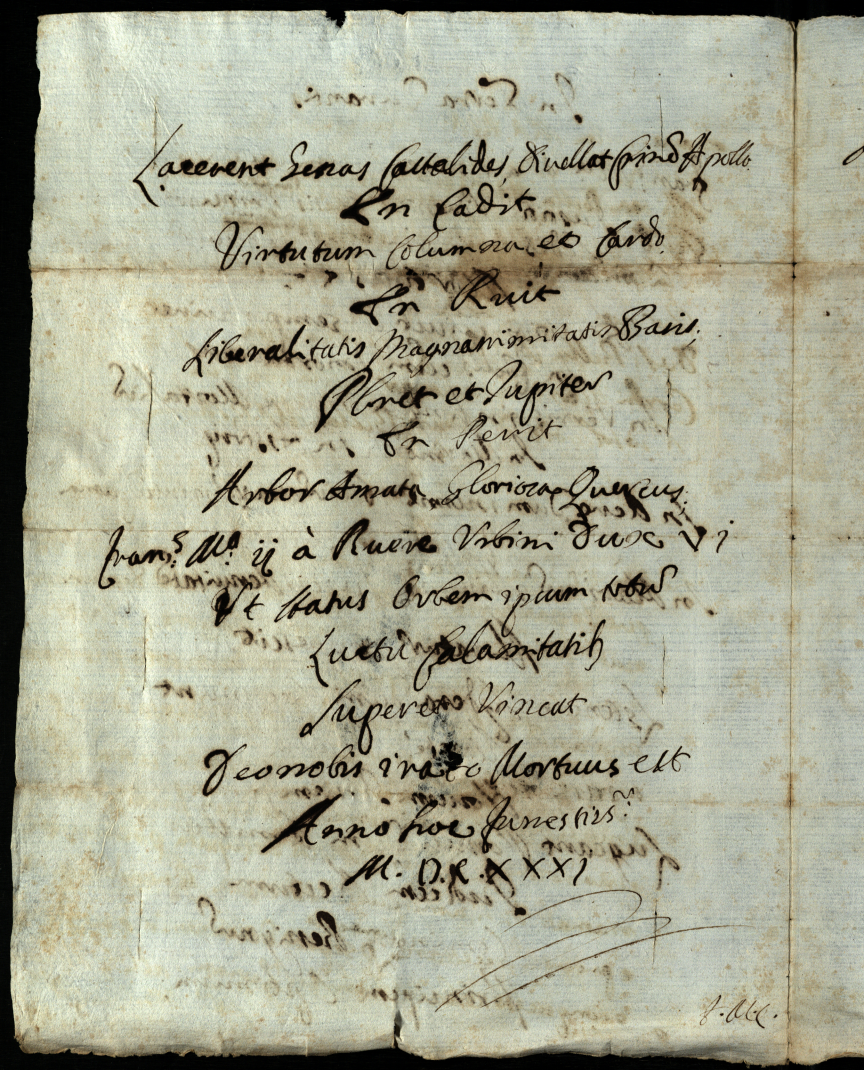 Lacerent Genas Castalides, Diuellat Crines Apollo
En Cadit
Virtutum Columna, et Cardo
En Ruit
Liberalitatis Magnanimitatis Basis.
Ploret et Jupiter
En Perit
Arbor Amata Gloriosa Quercus.
Fran.s Ma. ij à Ruere Vrbini Dux Vj
Vt status Orbem ipsum
Luctu Calamitatib
Superet Vincat
Deo nobis irato Mortuus est
Anno hoc Funestiss.
M. D.C. XXXI